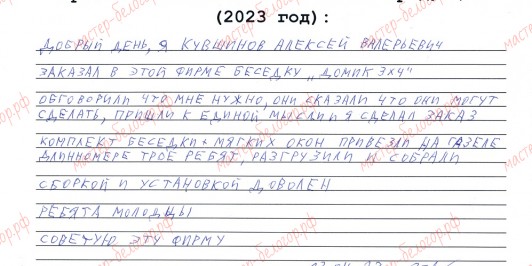 (2023 год):
ДОБРЫЙ ДЕНЬ, Я КУВШИНОВ АЛЕКСЕЙ ВАЛЕРЬЕВИЧ
ЗАКАЗАЛ В ЭТОЙ ФИРМЕ БЕСЕДКУ „ДОМИК 3х4"
ОБГОВОРИЛИ ЧТО МНЕ НУЖНО, ОНИ СКАЗАЛИ ЧТО ОНИ МОГУТ
СДЕЛАТЬ, ПРИШЛИ К ЕДИНОЙ МЫСЛИ И Я СДЕЛАЛ ЗАКАЗ
КОМПЛЕКТ БЕСЕДКИ + МЯГКИХ ОКОН ПРИВЕЗЛИ НА ГАЗЕЛЕ
ДЛИННОМЕРЕ ТРОЕ РЕБЯТ, РАЗГРУЗИЛИ И СОБРАЛИ
СБОРКОЙ И УСТАНОВКОЙ ДОВОЛЕН
РЕБЯТА МОЛОДЦЫ
СОВЕТУЮ ЭТУ ФИРМУ